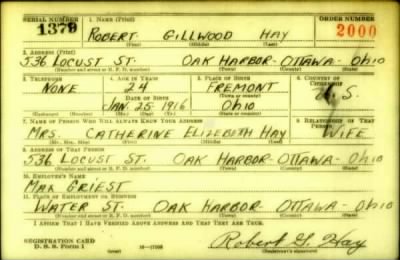 SERIAL NUMBER 1. NAME (Print) ORDER NUMBER
1379 ROBERT GILLWOOD HAY 2000
(First) (Middle) (Last)
2. ADDRESS (Print)
536 LOCUST ST. OAK HARBOR-OTTAWA-OHIO
(Number and street or R. F. D. number) (Town) (County) (State)
3. TELEPHONE 4. AGE IN YEARS 5. PLACE OF BIRTH 6. COUNTRY OF CITIZENSHIP
NONE 24 FREMONT U.S.
DATE OF BIRTH (Town or county)
JAN. 25 1916 OHIO
(Exchange) (Number) (Mo.) (Day) (Yr.) (State or country)
7. NAME OF PERSON WHO WILL ALWAYS KNOW YOUR ADDRESS 8. RELATIONSHIP OF THAT PERSON
MRS. CATHERINE ELIZEBETH HAY WIFE
(Mr., Mrs., Miss) (First) (Middle) (Last)
9. ADDRESS OF THAT PERSON
536 LOCUST ST. OAK HARBOR-OTTAWA-OHIO
(Number and street or R. F. D. number) (Town) (County) (State)
10. EMPLOYER'S NAME
MAX GRIEST
11. PLACE OF EMPLOYMENT OR BUSINESS
WATER ST. OAK HARBOR-OTTAWA-OHIO
(Number and street or R. F. D. number) (Town) (County) (State)
I AFFIRM THAT I HAVE VERIFIED ABOVE ANSWERS AND THAT THEY ARE TRUE.
REGISTRATION CARD
D. S. S. Form 1 Robert G. Hay